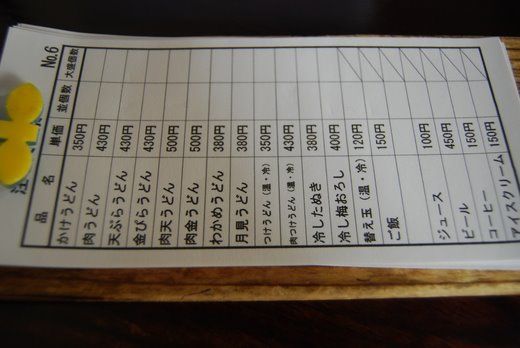 No.6
注
品名 単価 並個数 大盛個数
かけうどん 350円
肉うどん 430円
天ぷらうどん 430円
金ぴらうどん 430円
肉天うどん 500円
肉金うどん 500円
わかめうどん 380円
月見うどん 380円
つけうどん(温・冷) 350円
肉つけうどん(温・冷) 430円
冷したぬき 380円
冷し梅おろし 400円
替え玉(温・冷) 120円
ご飯 150円
ジュース 100円
ビール 450円
コーヒー 150円
アイスクリーム 150円